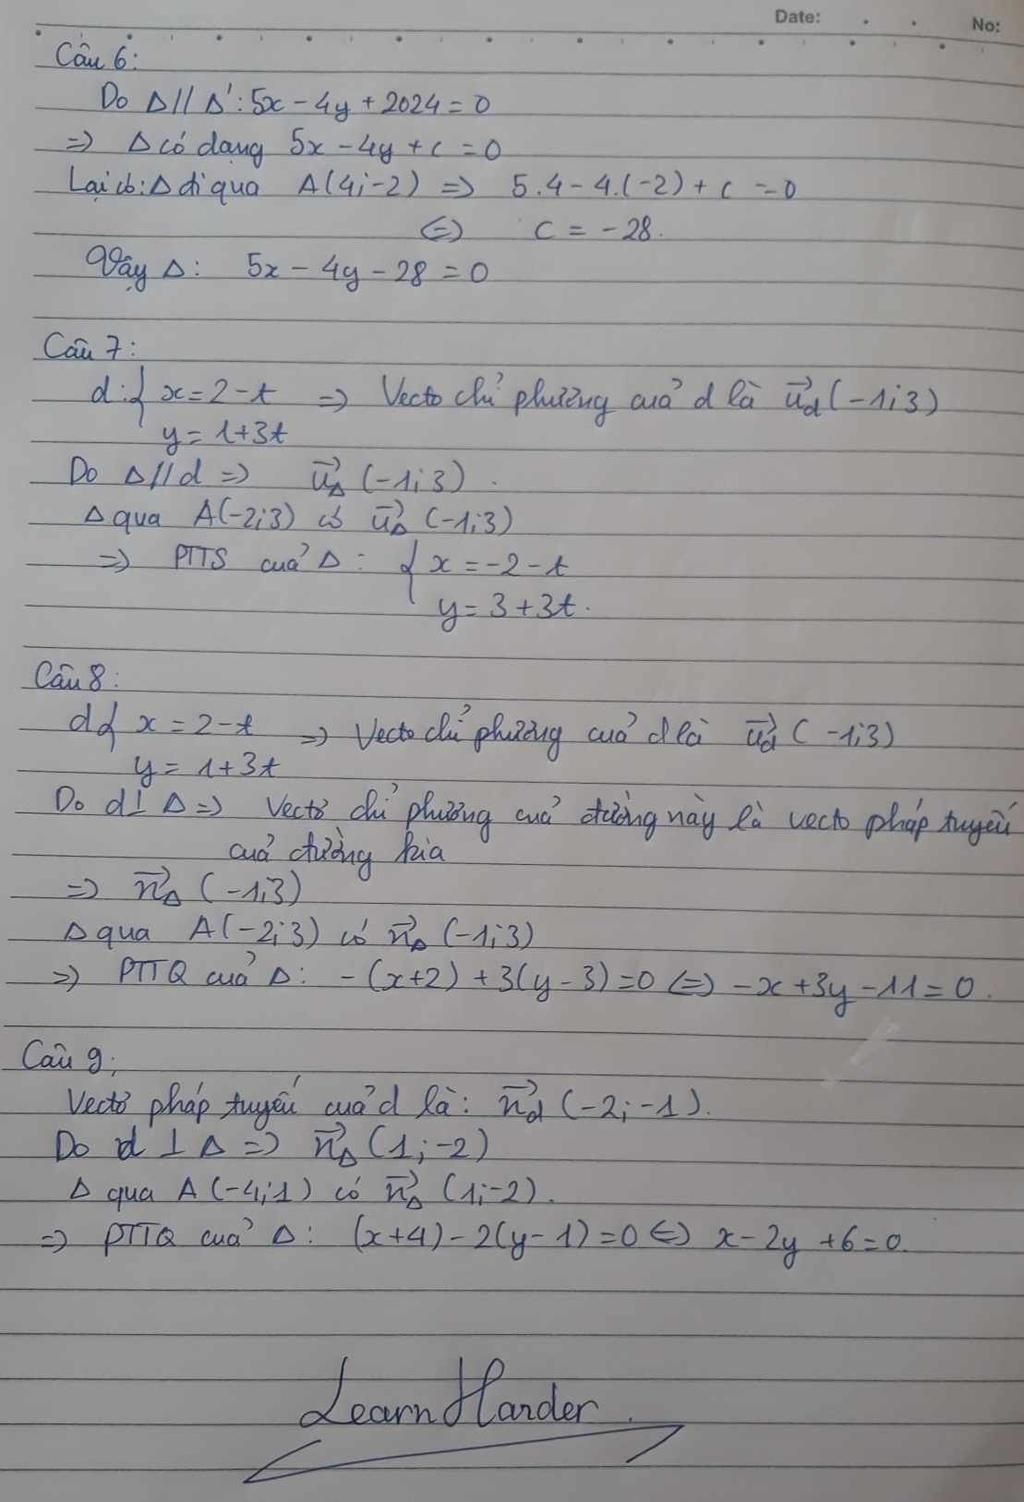 Date: . . No:
Câu 6:
Do Δ // Δ': 5x - 4y + 2024 = 0
=> Δ có dạng 5x - 4y + c = 0
Lại có: Δ đi qua A(4;-2) => 5.4 - 4.(-2) + c = 0
<=> c = -28.
Vậy Δ: 5x - 4y - 28 = 0
Câu 7:
d: { x = 2 - t => Vectơ chỉ phương của d là u⃗d (-1;3)
y = 1 + 3t
Do Δ // d => u⃗Δ (-1;3).
Δ qua A(-2;3) có u⃗Δ (-1;3)
=> PTTS của Δ: { x = -2 - t
y = 3 + 3t.
Câu 8:
d { x = 2 - t => Vectơ chỉ phương của d là u⃗d (-1;3)
y = 1 + 3t
Do d ⊥ Δ => Vectơ chỉ phương của đường này là vectơ pháp tuyến
của đường kia
=> n⃗Δ (-1;3)
Δ qua A(-2;3) có n⃗Δ (-1;3)
=> PTTQ của Δ: -(x+2) + 3(y-3) = 0 <=> -x + 3y - 11 = 0.
Câu 9:
Vectơ pháp tuyến của d là: n⃗d (-2;-1).
Do d ⊥ Δ => n⃗Δ (1;-2)
Δ qua A(-4;1) có n⃗Δ (1;-2).
=> PTTQ của Δ: (x+4) - 2(y-1) = 0 <=> x - 2y + 6 = 0.
Learn Harder.